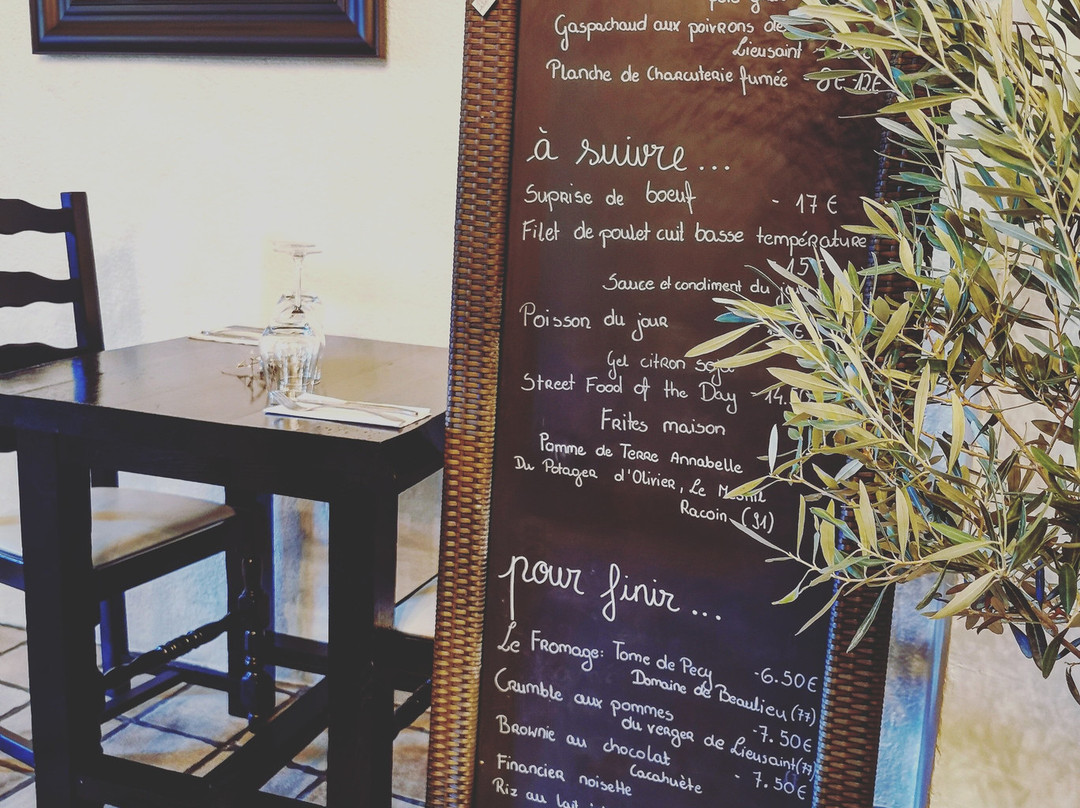 Gaspachaud aux poivrons
Lieusaint
Planche de Charcuterie fumée -12€
à suivre...
Suprise de boeuf - 17€
Filet de poulet cuit basse température
15
Sauce et condiment du
Poisson du jour
Gel citron soja
Street Food of the Day -14.
Frites maison
Pomme de Terre Annabelle
Du Potager d'Olivier, Le Mesnil
Racoin (91)
pour finir...
Le Fromage: Tome de Pecy -6.50€
Domaine de Beaulieu (77)
Crumble aux pommes -7.50€
du verger de Lieusaint (77)
Brownie au chocolat - 7.50€
Cacahuète
Financier noisette
Riz au lait